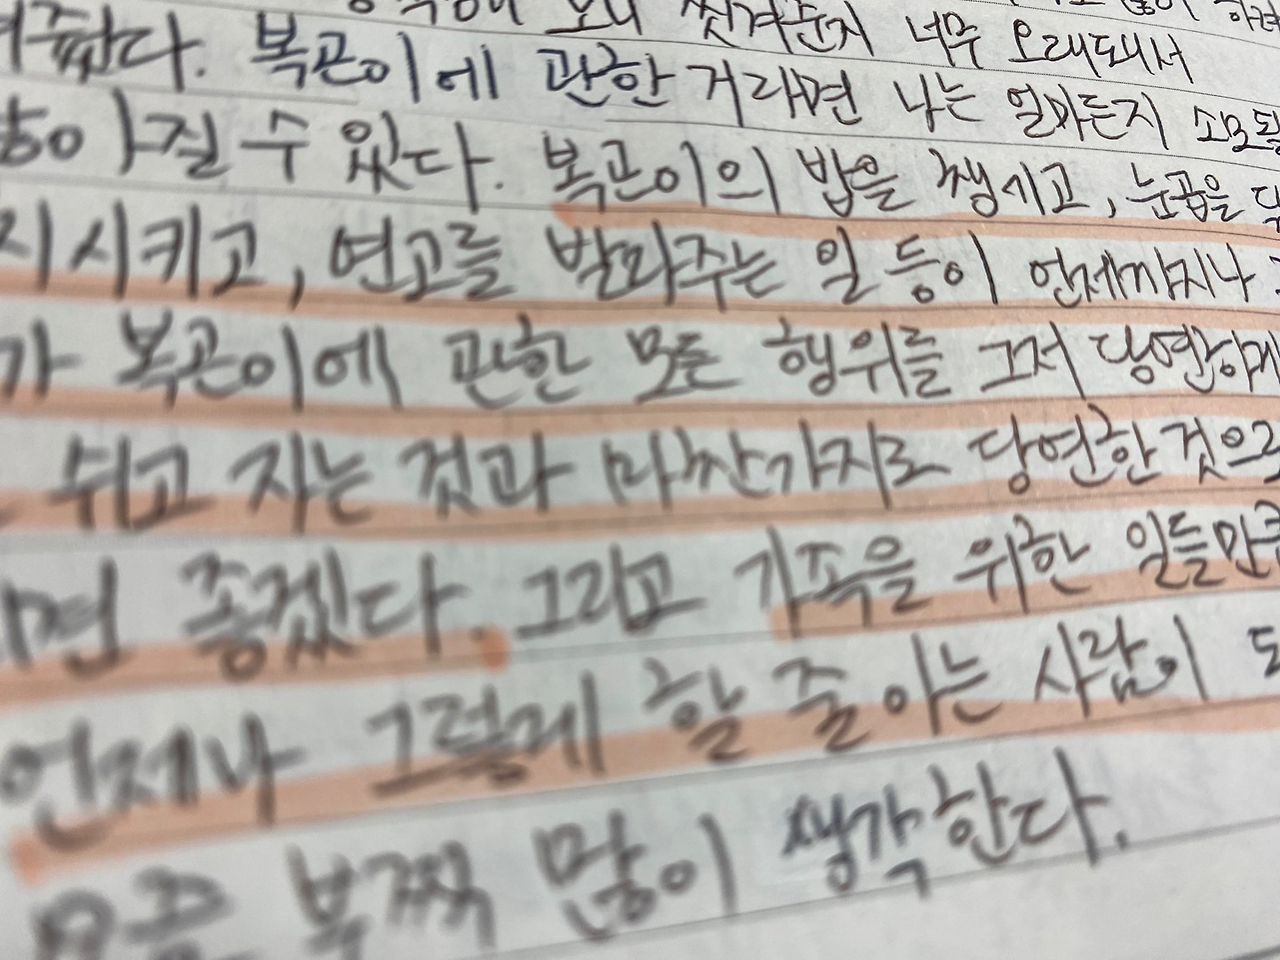 씻겨준지 너무 오래돼서
주었다. 복곤이에 관한 거라면 나는 얼마든지 소모될
아질 수 있다. 복곤이의 밥을 챙기고, 눈곱을
시키고, 연고를 발라주는 일 등이 언제까지나
가 복곤이에 관한 모든 행위를 그저 당연하게
쉬고 자는 것과 마찬가지로 당연한 것으로
면 좋겠다. 그리고 가족을 위한 일들만큼
언제나 그렇게 할 줄 아는 사람이
요즘 부쩍 많이 생각한다.